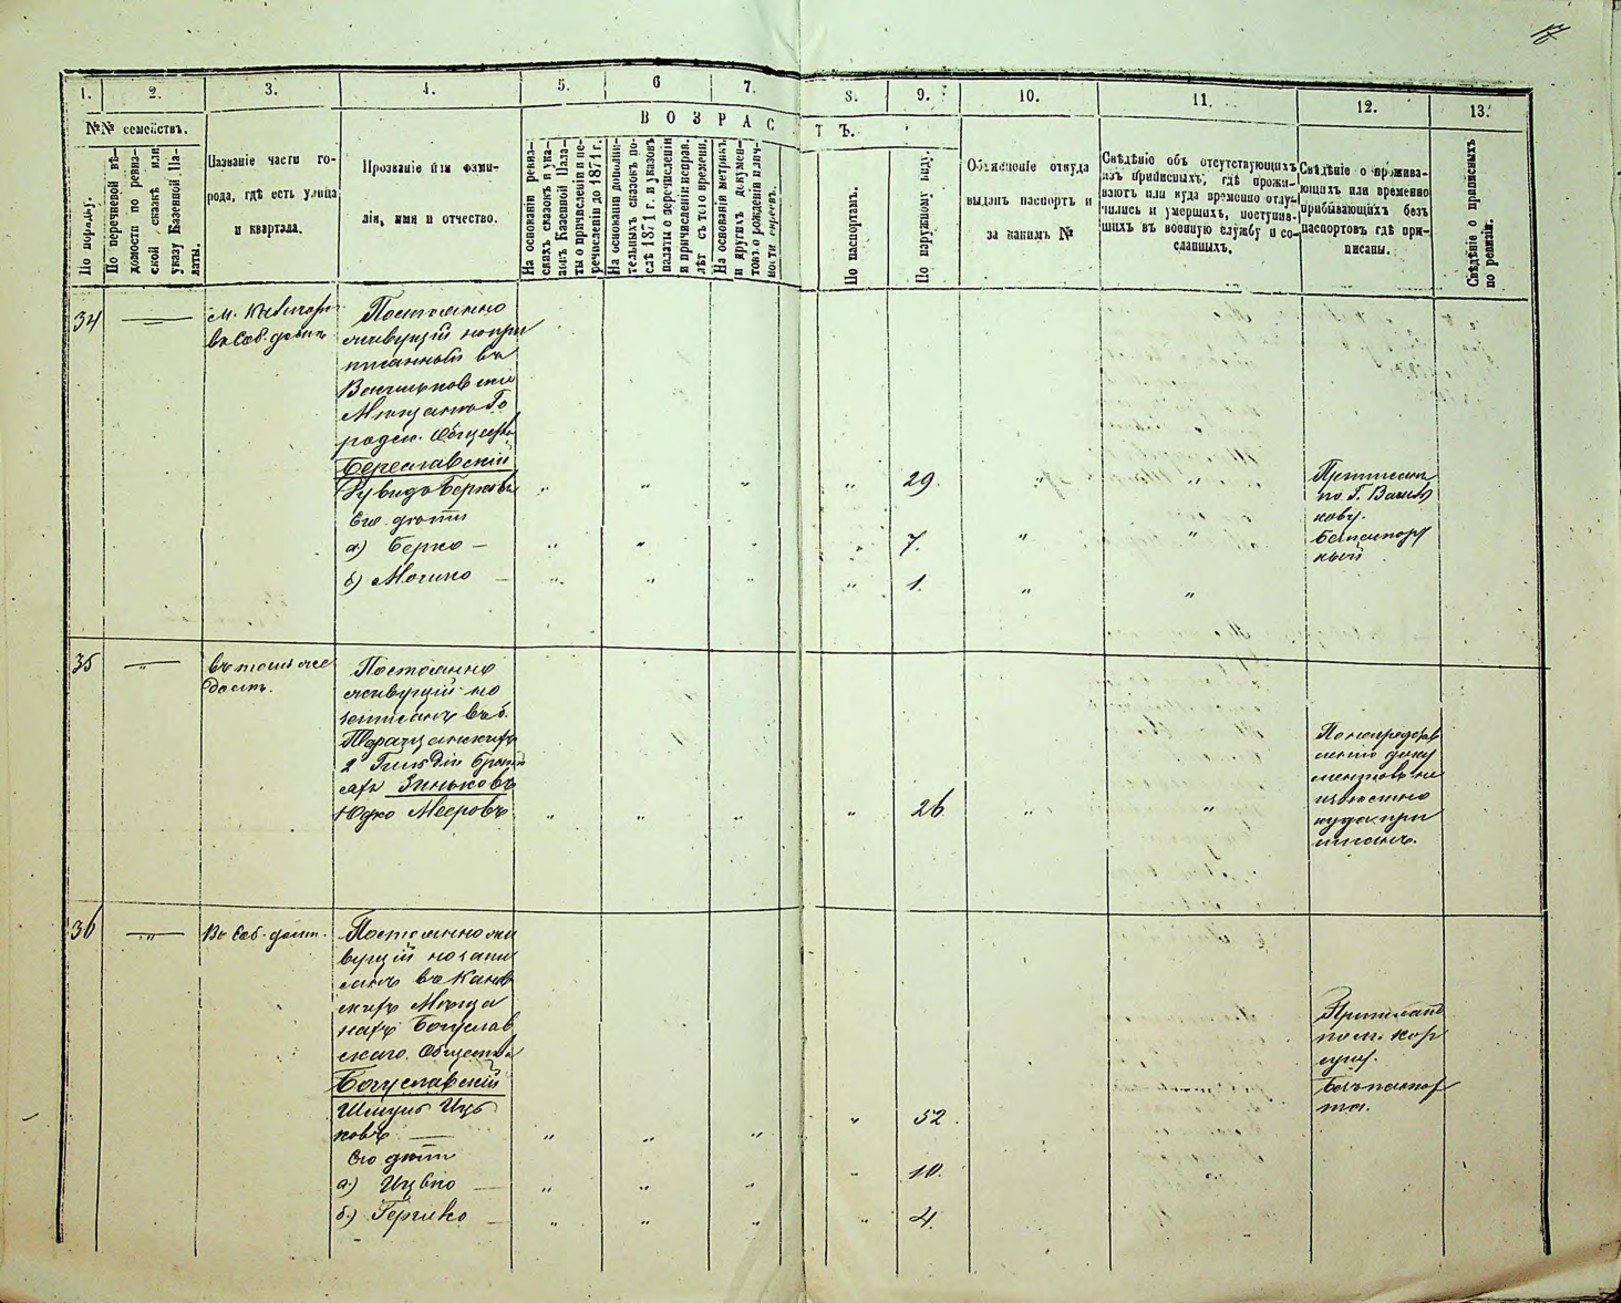 17
1.
2.
3.
4.
5.
6
7.
8.
9.
10.
11.
12.
13.
№№ семействъ.
По порядку.
По перечневой вѣ-
домости по ревиз-
ской сказкѣ или
указу Казенной Па-
латы.
Названіе части го-
рода, гдѣ есть улица
и квартала.
Прозваніе или фами-
лія, имя и отчество.
ВОЗРАСТЪ.
На основаніи ревиз-
скихъ сказокъ и ука-
зовъ Казенной Пала-
ты о причисленіи и пе-
речисленіи до 1871 г.
На основаніи дополни-
тельныхъ сказокъ по-
слѣ 1871 г. и указовъ
палаты о перечисленіи
и причисленіи исправ.
лѣт съ того времени.
На основаніи метрик.
и другихъ докумен-
товъ о рожденіи и лич-
ности евреевъ.
По паспортамъ.
По наружному виду.
Объясненіе откуда
выданъ паспортъ и
за какимъ №
Свѣдѣніе объ отсутствующихъ
изъ приписныхъ, гдѣ прожи-
ваютъ или куда временно отлу-
чились и умершихъ, поступив-
шихъ въ военную службу и со-
сланныхъ.
Свѣдѣніе о прожива-
ющихъ или временно
прибывающихъ безъ
паспортовъ гдѣ при-
писаны.
Свѣдѣніе о приписныхъ
по ревизіи.
34
въ Соб. домѣ
Постоянно
живущій
въ
Васильковскія
Городск. Общества
Береславскій
Берковъ
Его дѣти
а) Берко —
б) Мошко —
29.
7.
1.
Приписанъ
по Г. Василь
кову.
35
въ томъ же
домѣ.
Постоянно
живущій
въ б.
2 Гильдіи
Зиньковъ
Юдко Мееровъ
26
документовъ не
извѣстно
куда при
писанъ.
36
Въ Соб. домѣ.
Постоянно жи
вущій
санъ въ Канев
скихъ Мѣща
нахъ Богуслав
скаго Общества
Богуславскій
Шмуль Иць
ковъ —
Его дѣти
а) Ицько —
б) Гершко —
52.
10.
4.
Приписанъ
по м. Кор
суну.
Безъ паспор
та.